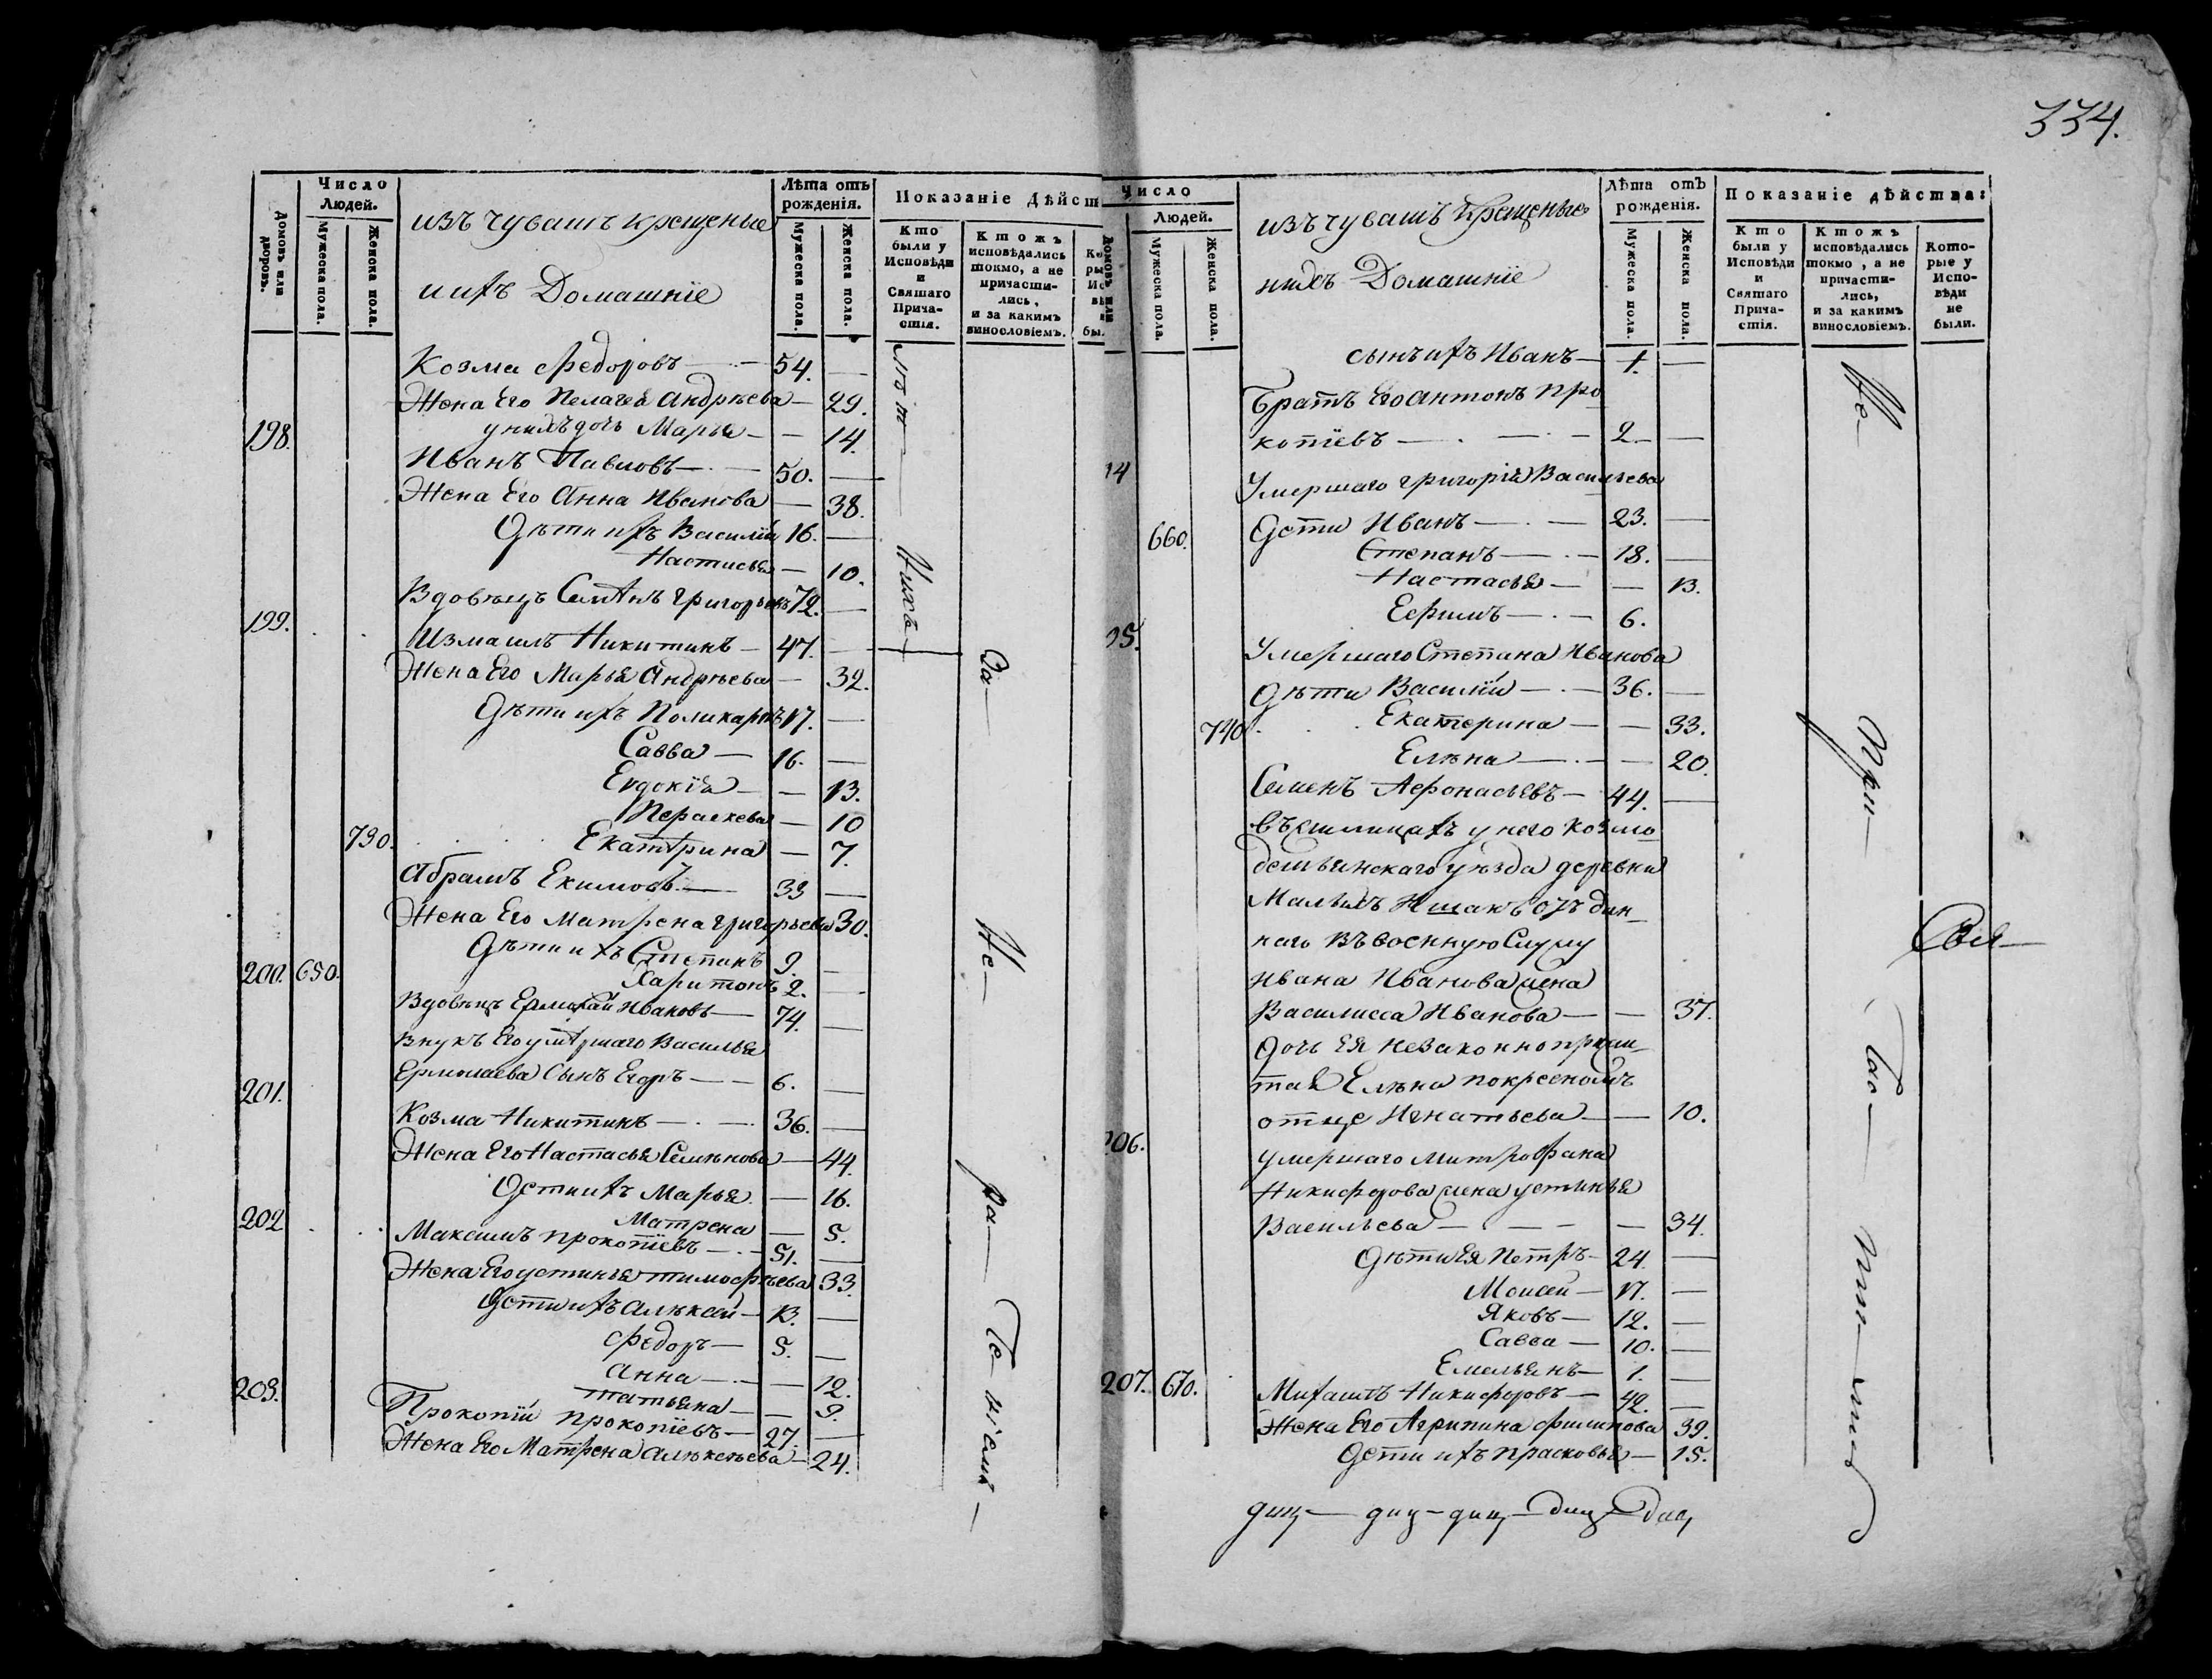 334.
Число Людей.
Домовъ или дворовъ.
Мужеска пола.
Женска пола.
изъ чувашъ крещеные
и ихъ Домашніе
Лѣта отъ рожденія.
Мужеска пола.
Женска пола.
Показаніе Дѣйст
Кто были у Исповѣди и Святаго Прича-стія.
Ктожъ исповѣдались токмо, а не причасти-лись, и за какимъ винословіемъ.
Козма Федоровъ — 54. —
Жена Его Пелагея Андрѣева — 29.
у нихъ дочь Марья — — 14.
198.
Иванъ Павловъ — 50. —
Жена Его Анна Иванова — 38.
Дѣти ихъ Василій 16. —
Настасья — 10.
Вдовецъ Семенъ Григорьевъ 72. —
199.
Измаилъ Никитинъ — 47. —
Жена Его Марья Андрѣева — 32.
Дѣти ихъ Поликарпъ 17. —
Савва — 16. —
Евдокія — — 13.
Пераскева — 10
730. Екатерина — 7.
Абрамъ Екимовъ — 33 —
Жена Его Матрена Григорьева 30.
Дѣти ихъ Степанъ 9. —
200. 650. Харитонъ 2. —
Вдовецъ Ермолай Ивановъ — 74. —
Внукъ Его умершаго Василья
Ермолаева Сынъ Егоръ — — 6. —
201.
Козма Никитинъ — 36. —
Жена Его Настасья Семенова — 44.
Дети ихъ Марья — 16.
Матрена — 5.
202
Максимъ прокопіевъ — 51. —
Жена Его устинья тимофѣева 33.
Дети ихъ алѣксей — 13. —
Федоръ — 5. —
Анна — — 12.
татьяна — — 9.
203.
Прокопій прокопіевъ — 27. —
Жена Его Матрена алѣксѣева — 24.
Число Людей.
Мужеска пола.
Женска пола.
изъ чувашъ крещеные
и ихъ Домашніе
Лѣта отъ рожденія.
Мужеска пола.
Женска пола.
Показаніе дѣйства:
Кто были у Исповѣди и Святаго Прича-стія.
Ктожъ исповѣдались токмо, а не причасти-лись, и за какимъ винословіемъ.
Кото-рые у Испо-вѣди не были.
сынъ ихъ Иванъ — 1. —
Братъ Его антонъ про
копіевъ — 2 — —
14
Умершаго григорія Васильева
660. Дети Иванъ — 23. —
Степанъ — 18. —
Настасья — — 13.
Ефимъ — 6.
Умершаго Степана Иванова
Дѣти Василій — 36. —
740. Екатерина — — 33.
Елѣна — — 20.
Семенъ Афонасьевъ — 44. —
у него козмо
демьянскаго уѣзда деревни
отъ дан-
наго въ военную
Ивана Иванова жена
Василисса Иванова — — 37.
Дочь Ея
Елѣна
отце Игнатьева — — 10.
206.
умершаго митрофана
Никифорова жена устинья
Васильева — — 34.
дѣти Ея Петръ — 24. —
Моисей — 17. —
Яковъ — 12. —
Савва — 10. —
Емельянъ — 1. —
207. 670. Михаилъ Никифоровъ — 42. —
Жена Его Агрипина филипова 39.
Дети ихъ прасковья — 15.